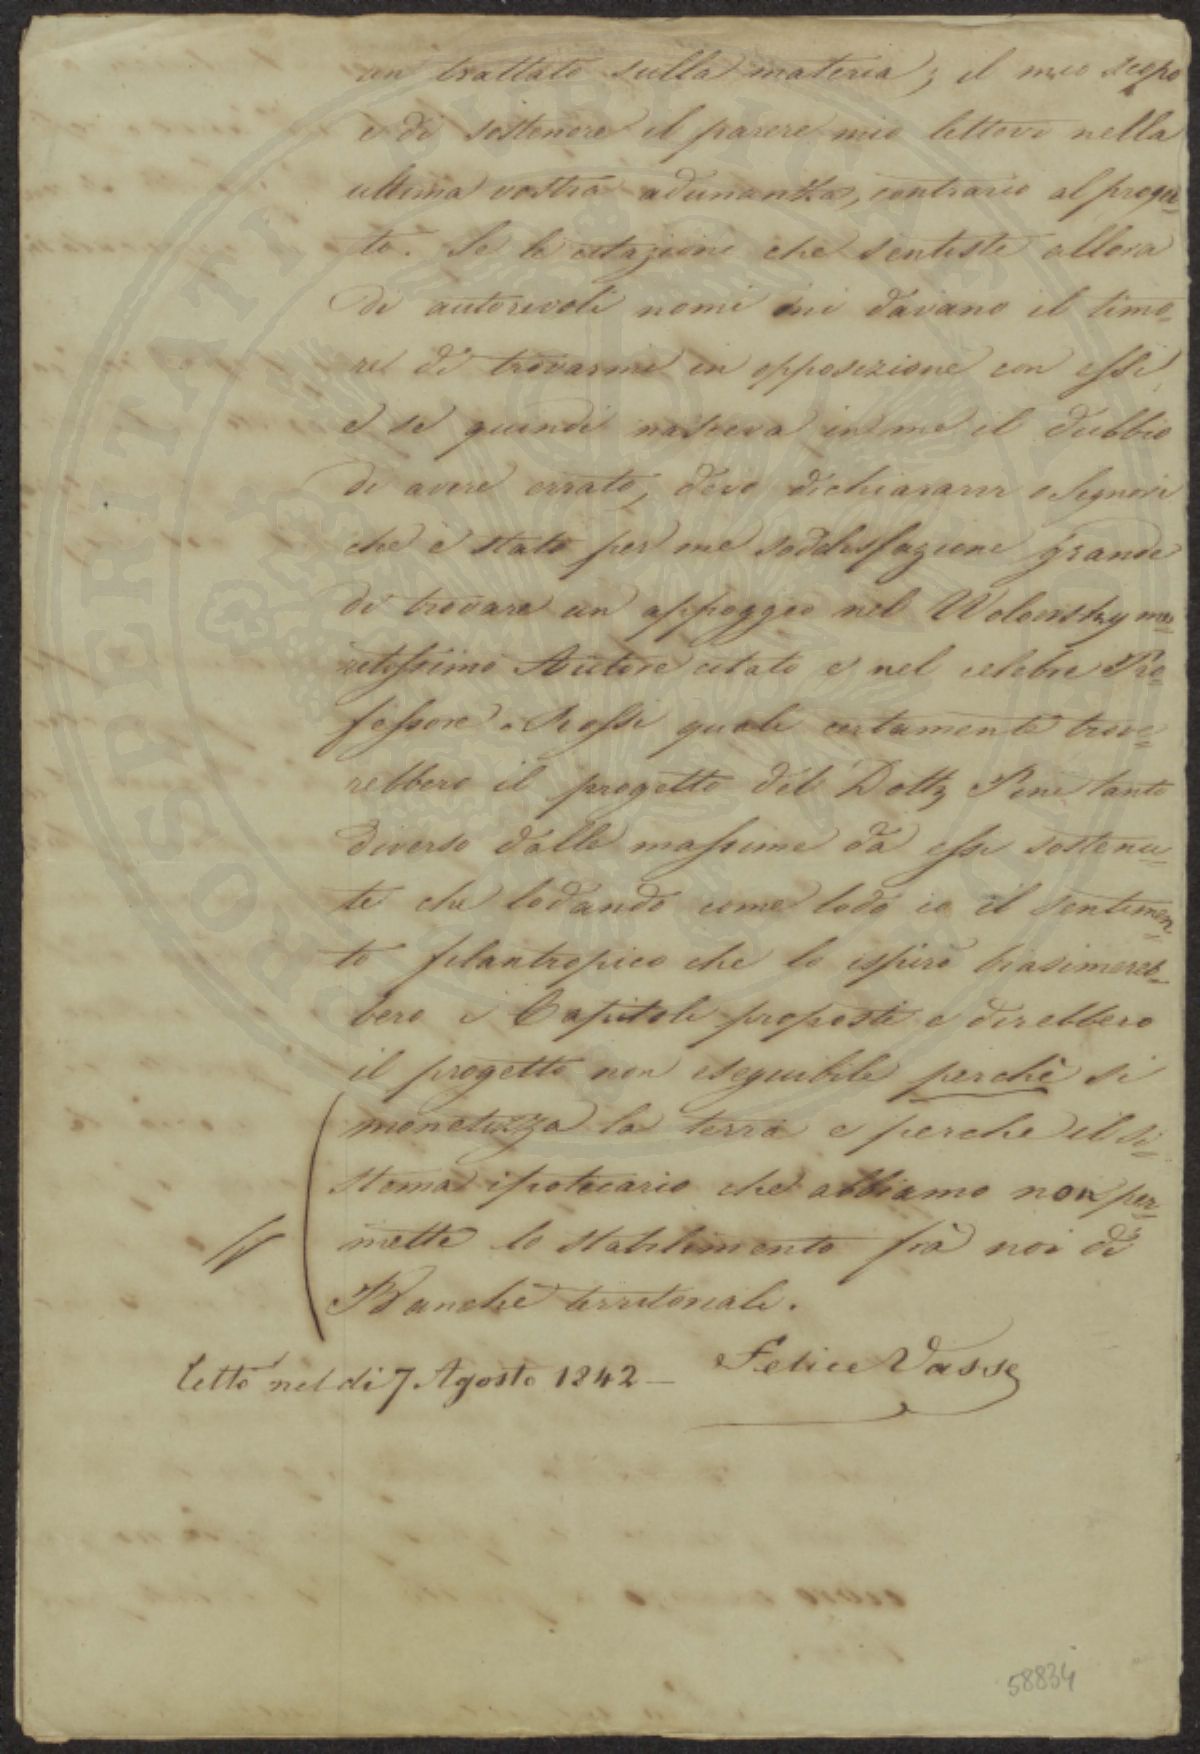 un trattato sulla materia; il mio scopo
e di sostenere il parere mio lettovi nella
ultima vostra adunanza, contrario al proget-
to. Se le citazioni che sentiste allora
di autorevoli nomi mi davano il timo-
re di trovarmi in opposizione con essi
e se quindi nasceva in me il dubbio
di avere errato, devo dichiararvi o Signori
che è stato per me soddisfazione grande
di trovare un appoggio nel Wolowsky me-
ritissimo Autore citato e nel celebre Pro-
fessore Rossi quali certamente trove-
rebbero il progetto del Dott. Pene tanto
diverso dalle massime da essi sostenu-
te che lodando come lodo io il sentimen-
to filantropico che lo ispirò biasimereb-
bero i Capitoli proposti e direbbero
il progetto non eseguibile perchè si
monetizza la terra e perche il si-
stema ipotecario che abbiamo non per-
mette lo stabilimento frà noi di
Banche territoriali.
Felice Vasse
Letto nel di 7 Agosto 1842 —
58834
PROSPERITATI PUBLICAE